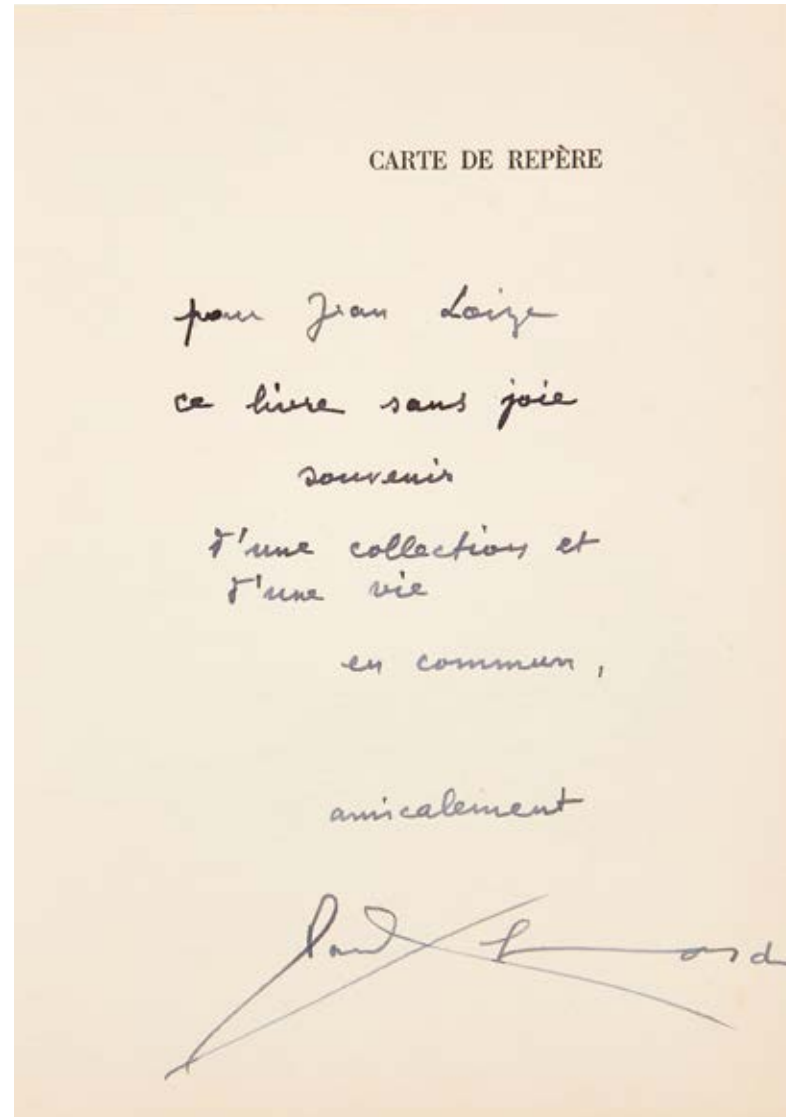 CARTE DE REPÈRE
pour Jean Loize
ce livre sans joie
souvenir
d'une collection et
d'une vie
en commun,
amicalement
Paul